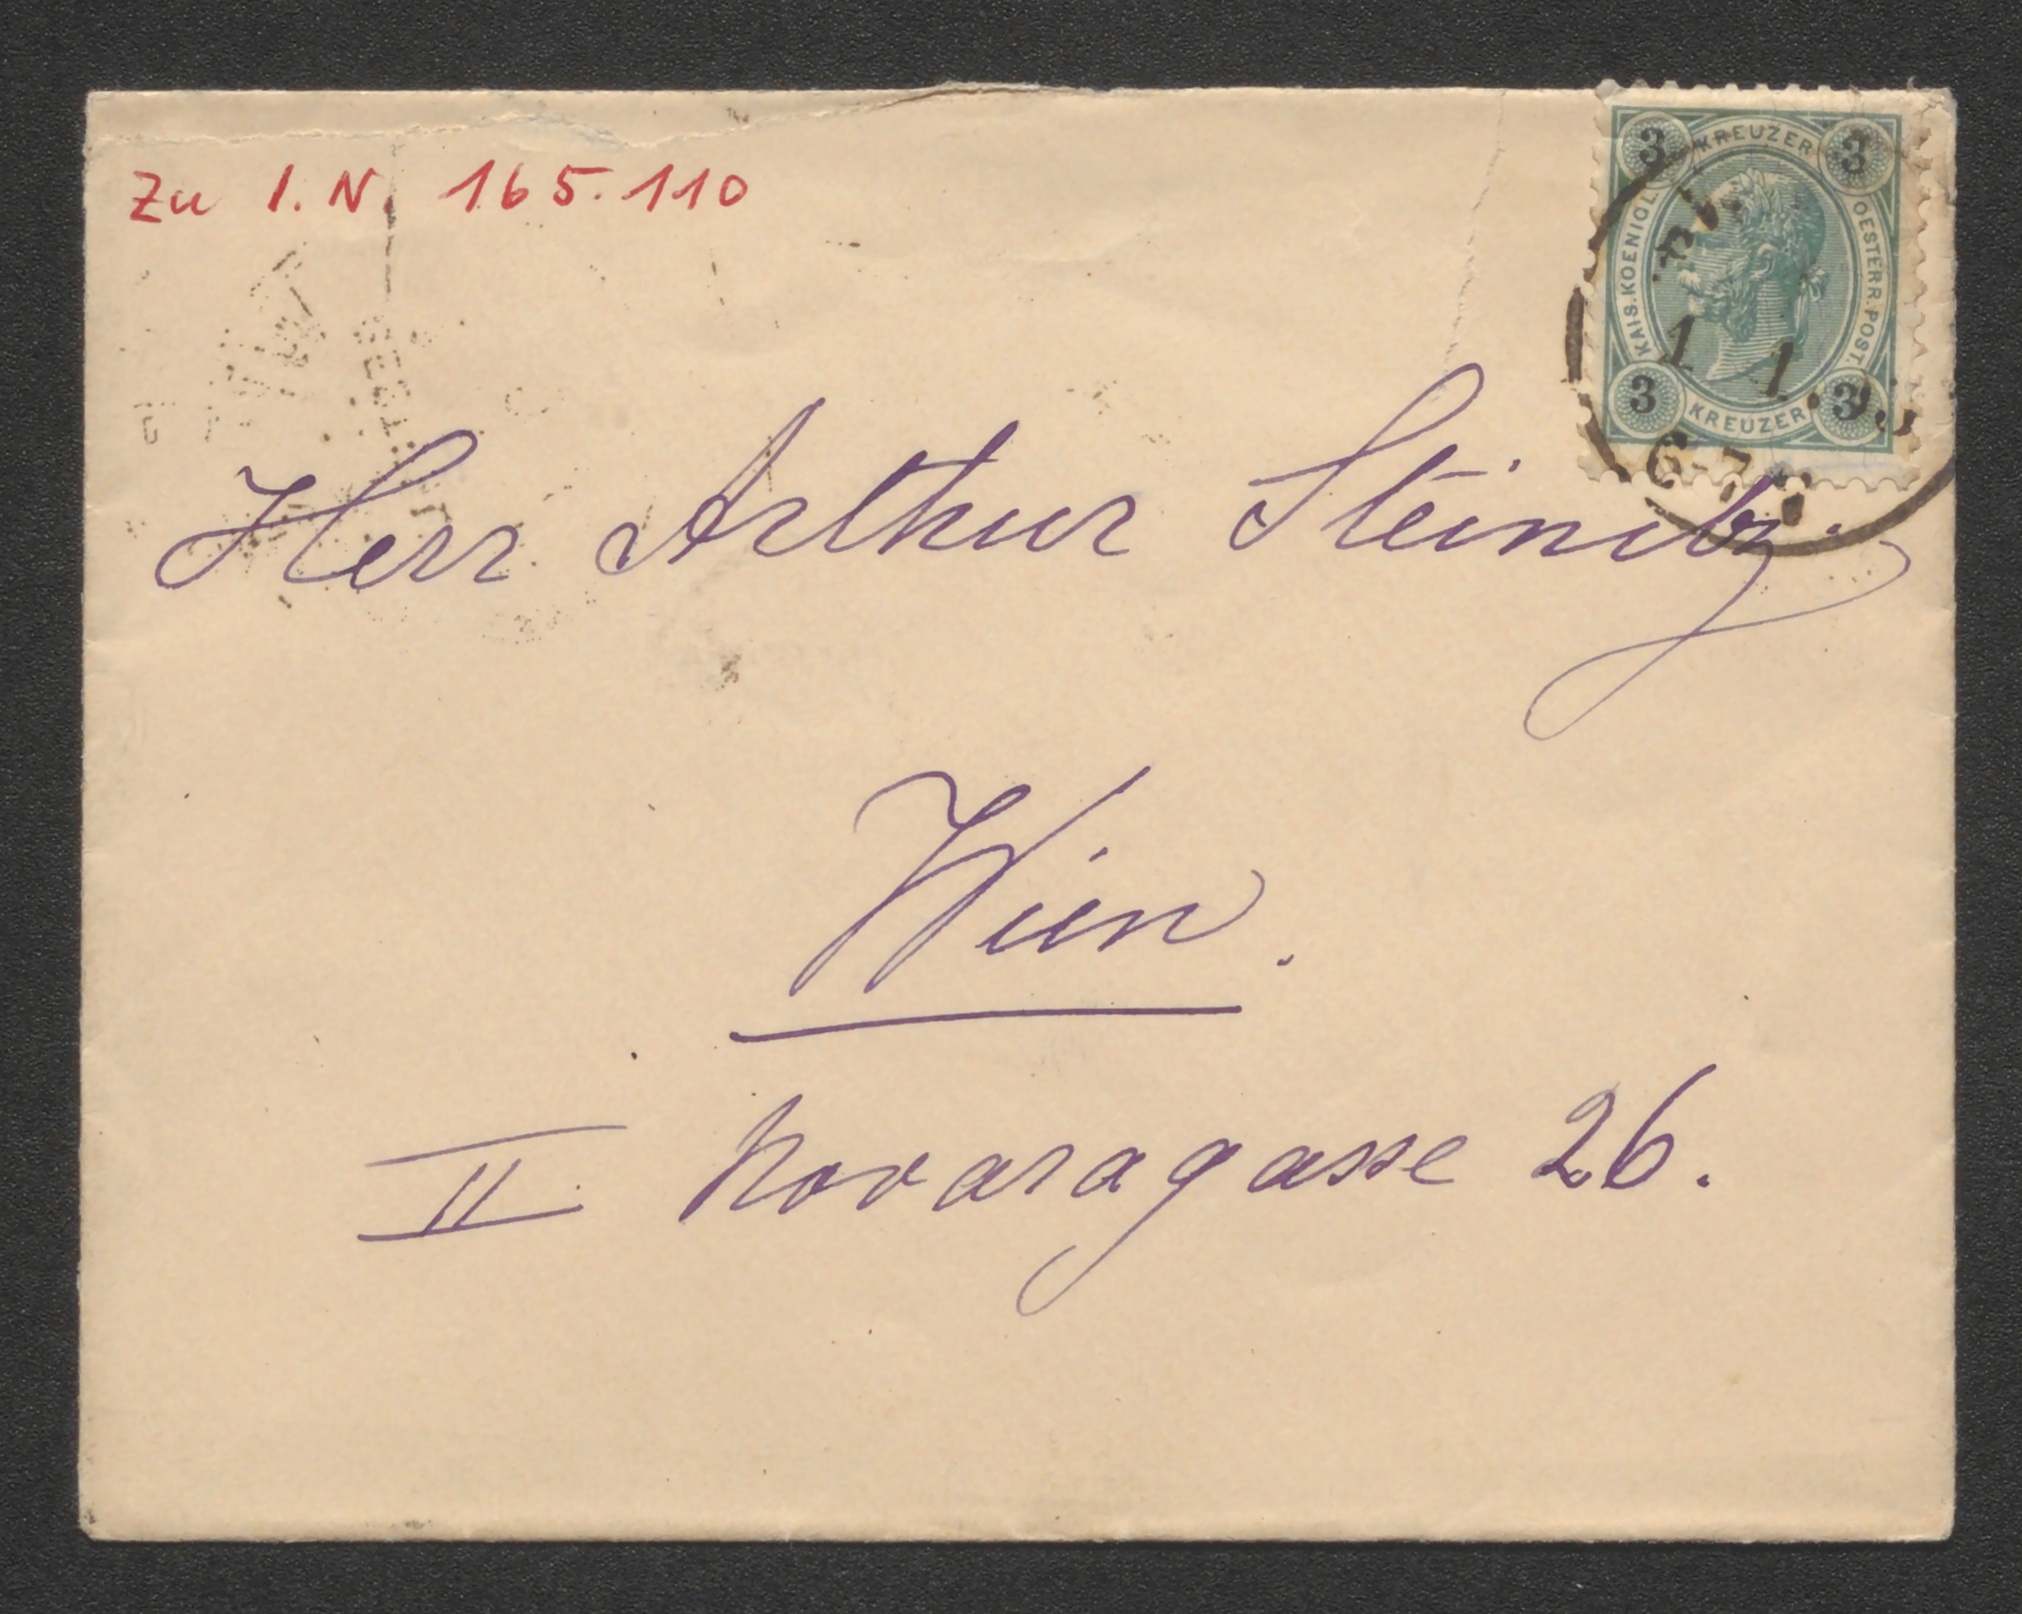 Zu I.N. 165.110
3 KREUZER 3
KAIS. KOENIGL. OESTERR. POST.
3 KREUZER 3
Herr Arthur Steinitz.
Wien.
II Novaragasse 26.